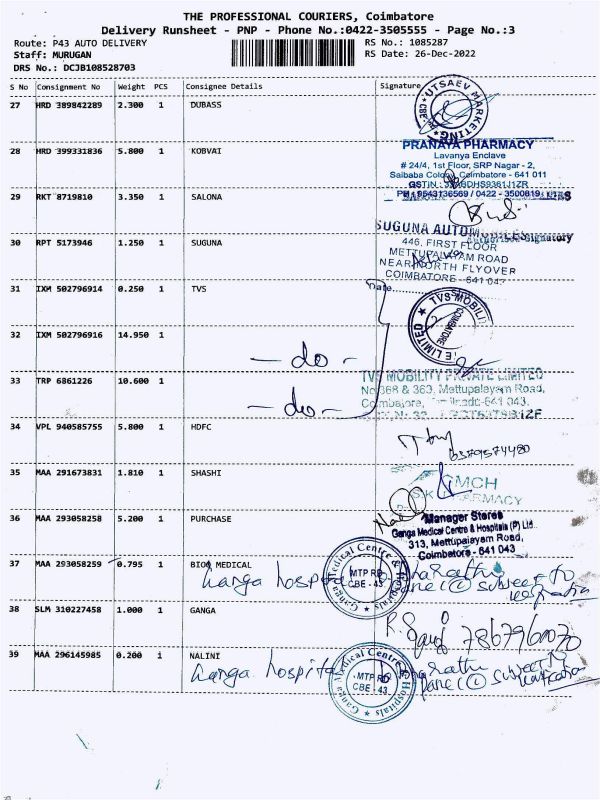 THE PROFESSIONAL COURIERS, Coimbatore
Delivery Runsheet - PNP - Phone No.:0422-3505555 - Page No.:3
Route: P43 AUTO DELIVERY RS No.: 1085287
Staff: MURUGAN RS Date: 26-Dec-2022
DRS No.: DCJB108528703
S No Consignment No Weight PCS Consignee Details Signature
27 HRD 389842289 2.300 1 DUBASS
UTSAEV MARKETING CBE
28 HRD 399331836 5.800 1 KOBVAI
PRANAYA PHARMACY
Lavanya Enclave
# 24/4, 1st Floor, SRP Nagar - 2,
Saibaba Colony, Coimbatore - 641 011
29 RKT 8719810 3.350 1 SALONA
30 RPT 5173946 1.250 1 SUGUNA
SUGUNA AUTOMOBILES
Authorised Signatory
446, FIRST FLOOR
METTUPALAYAM ROAD
NEAR NORTH FLYOVER
COIMBATORE - 641 043
31 IXM 502796914 0.250 1 TVS
Date
TVS MOBILITY
COIMBATORE
32 IXM 502796916 14.950 1
- do -
33 TRP 6861226 10.600 1
TVS MOBILITY PRIVATE LIMITED
No 368 & 363, Mettupalayam Road,
Coimbatore, 641 043.
- do -
34 VPL 940585755 5.800 1 HDFC
35 MAA 291673831 1.810 1 SHASHI
GMCH
PHARMACY
36 MAA 293058258 5.200 1 PURCHASE
Manager Stores
Ganga Medical Centre & Hospitals (P) Ltd.
313, Mettupalayam Road,
Coimbatore - 641 043
37 MAA 293058259 0.795 1 BIOO MEDICAL
Ganga hospital
Ganga Medical Centre & Hospitals
MTP RD
CBE - 43
38 SLM 310227458 1.000 1 GANGA
39 MAA 296145985 0.200 1 NALINI
Ganga hospital
Ganga Medical Centre & Hospitals
MTP RD
CBE - 43